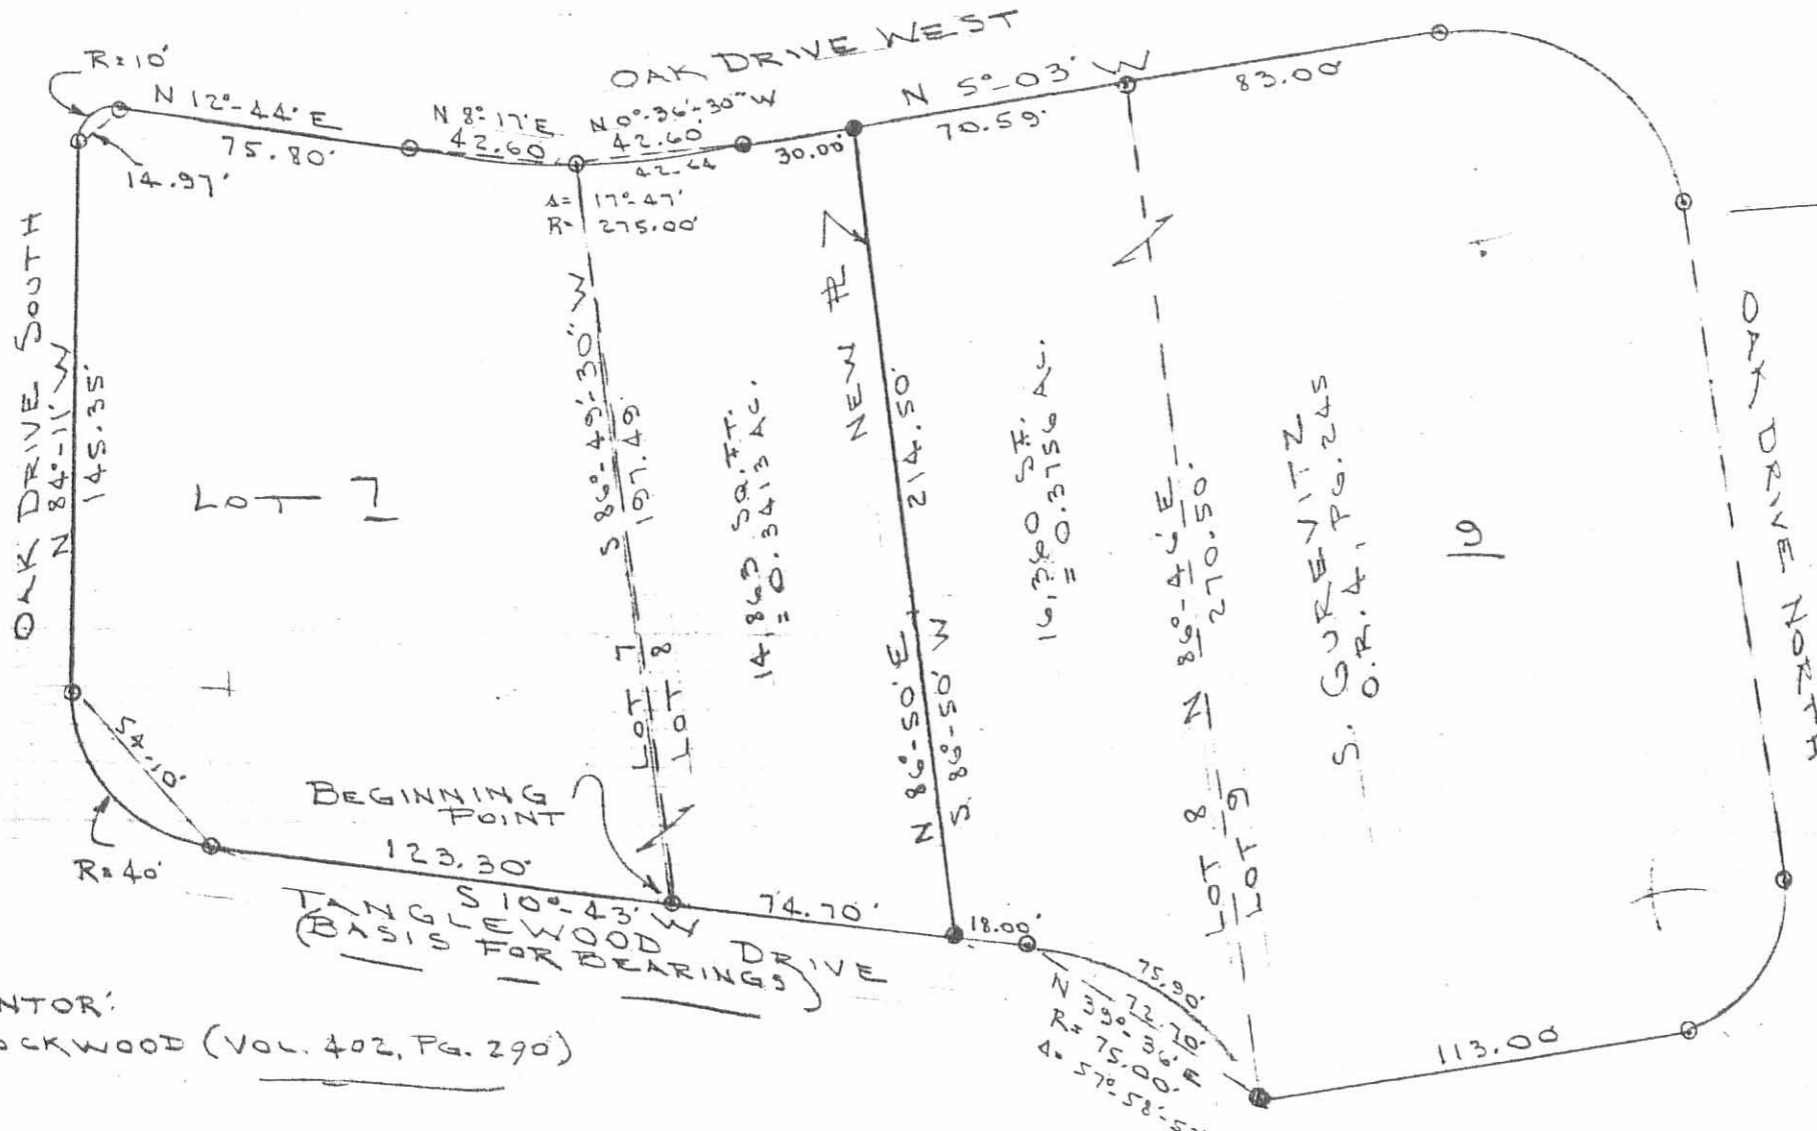 OAK DRIVE WEST
R=10'
N 12°-44' E
75.80'
14.97'
N 8°-17' E
42.60'
N 0°-36'-30" W
42.60'
42.64
30.00'
N 5°-03' W
70.59'
83.00'
Δ= 17°-47'
R= 275.00'
OAK DRIVE SOUTH
N 84°-11' W
145.35'
LOT 7
S 86°-49'-30" W
197.49
LOT 7
LOT 8
14,863 SQ. FT.
= 0.3413 AC.
NEW PL
214.50'
N 86°-50' E
S 86°-50' W
16,360 S.F.
= 0.3756 AC.
N 86°-46' E
270.50'
LOT 8
LOT 9
S. GUREVITZ
O.R. 4, PG. 245
9
OAK DRIVE NORTH
54.10'
R=40'
BEGINNING
POINT
123.30'
S 10°-43' W
74.70'
18.00'
TANGLEWOOD DRIVE
(BASIS FOR BEARINGS)
75.90'
72.70'
N 39°-36' E
R= 75.00'
Δ= 57°-58'
113.00'
NTOR:
OCKWOOD (VOL. 402, PG. 290)